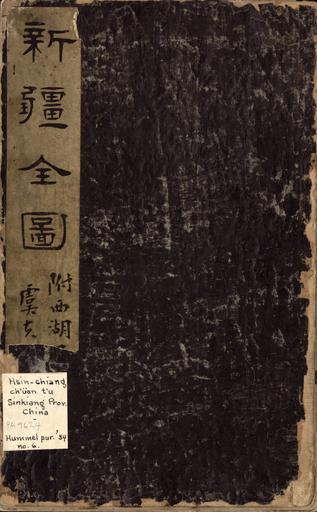 新疆全圖
附西湖
虞山
Hsin-chiang
ch'üan t'u
Sinkiang Prov.
China
Hummel pur. '34
no. 6.